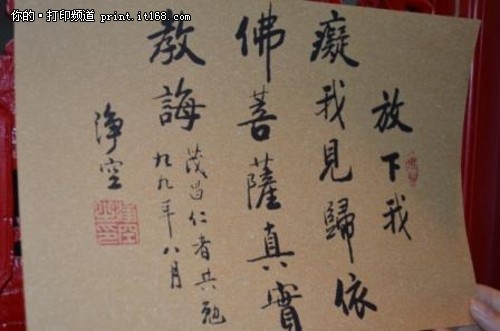 你的·打印频道 print.it168.com
放下我
癡我見歸依
佛菩薩真實
教誨
茂昌仁者共勉
九九年八月
淨空